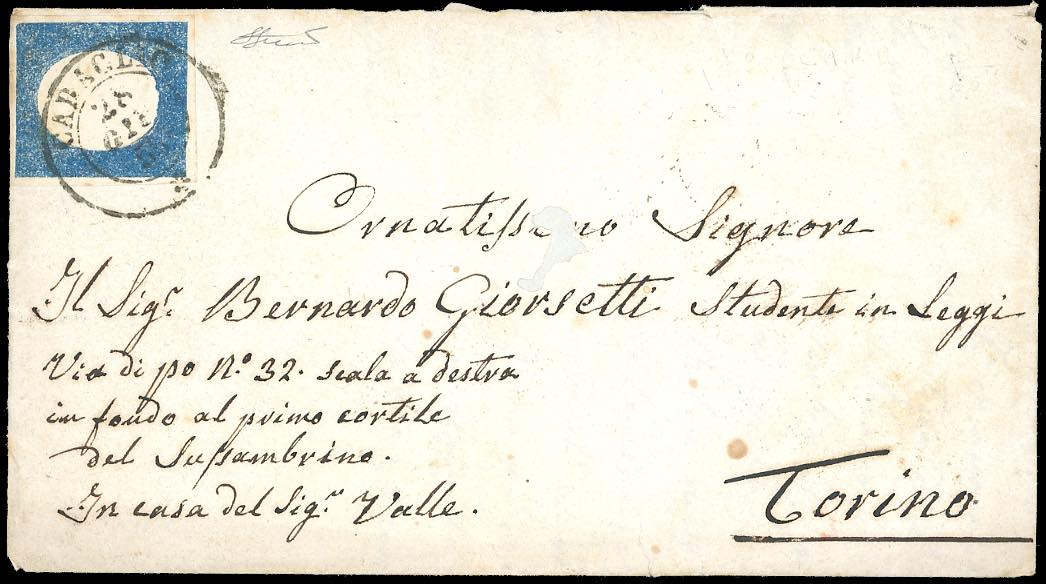 CARAGLIO
28
GIU
Ornatissimo Signore
Il Sig.r Bernardo Giorsetti Studente in Leggi
Via di po N.o 32. scala a destra
in fondo al primo cortile
del Sussambrino.
In casa del Sig.r Valle.
Torino